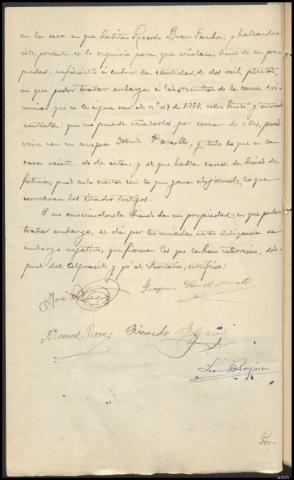 en la casa en que habita Ricardo Bravo y hallandose
este presente se le requirió para que señalase bienes de su pro-
piedad suficientes a cubrir la cantidad de dos mil pesetas,
en que poder trabar embargo a las resultas de la causa cri-
minal que se le sigue con el nº de 1938, sobre hurto; y enterado
contesta: que no puede señalarlos por carecer de ellos, pues
vive con su suegra y todo lo que en la
casa existe, es de esta, y el que habla carece de bienes de
fortuna, pues solo cuenta con lo que gana de jornal, lo que
corroboran los citados testigos.
Y no conociendosele bienes de su propiedad en que poder
trabar embargo, se da por terminada esta diligencia de
embargo negativa, que firman los que en han intervenido, des-
pues del Alguacil y yo el Secretario, certifico:
José
Manuel Ricardo